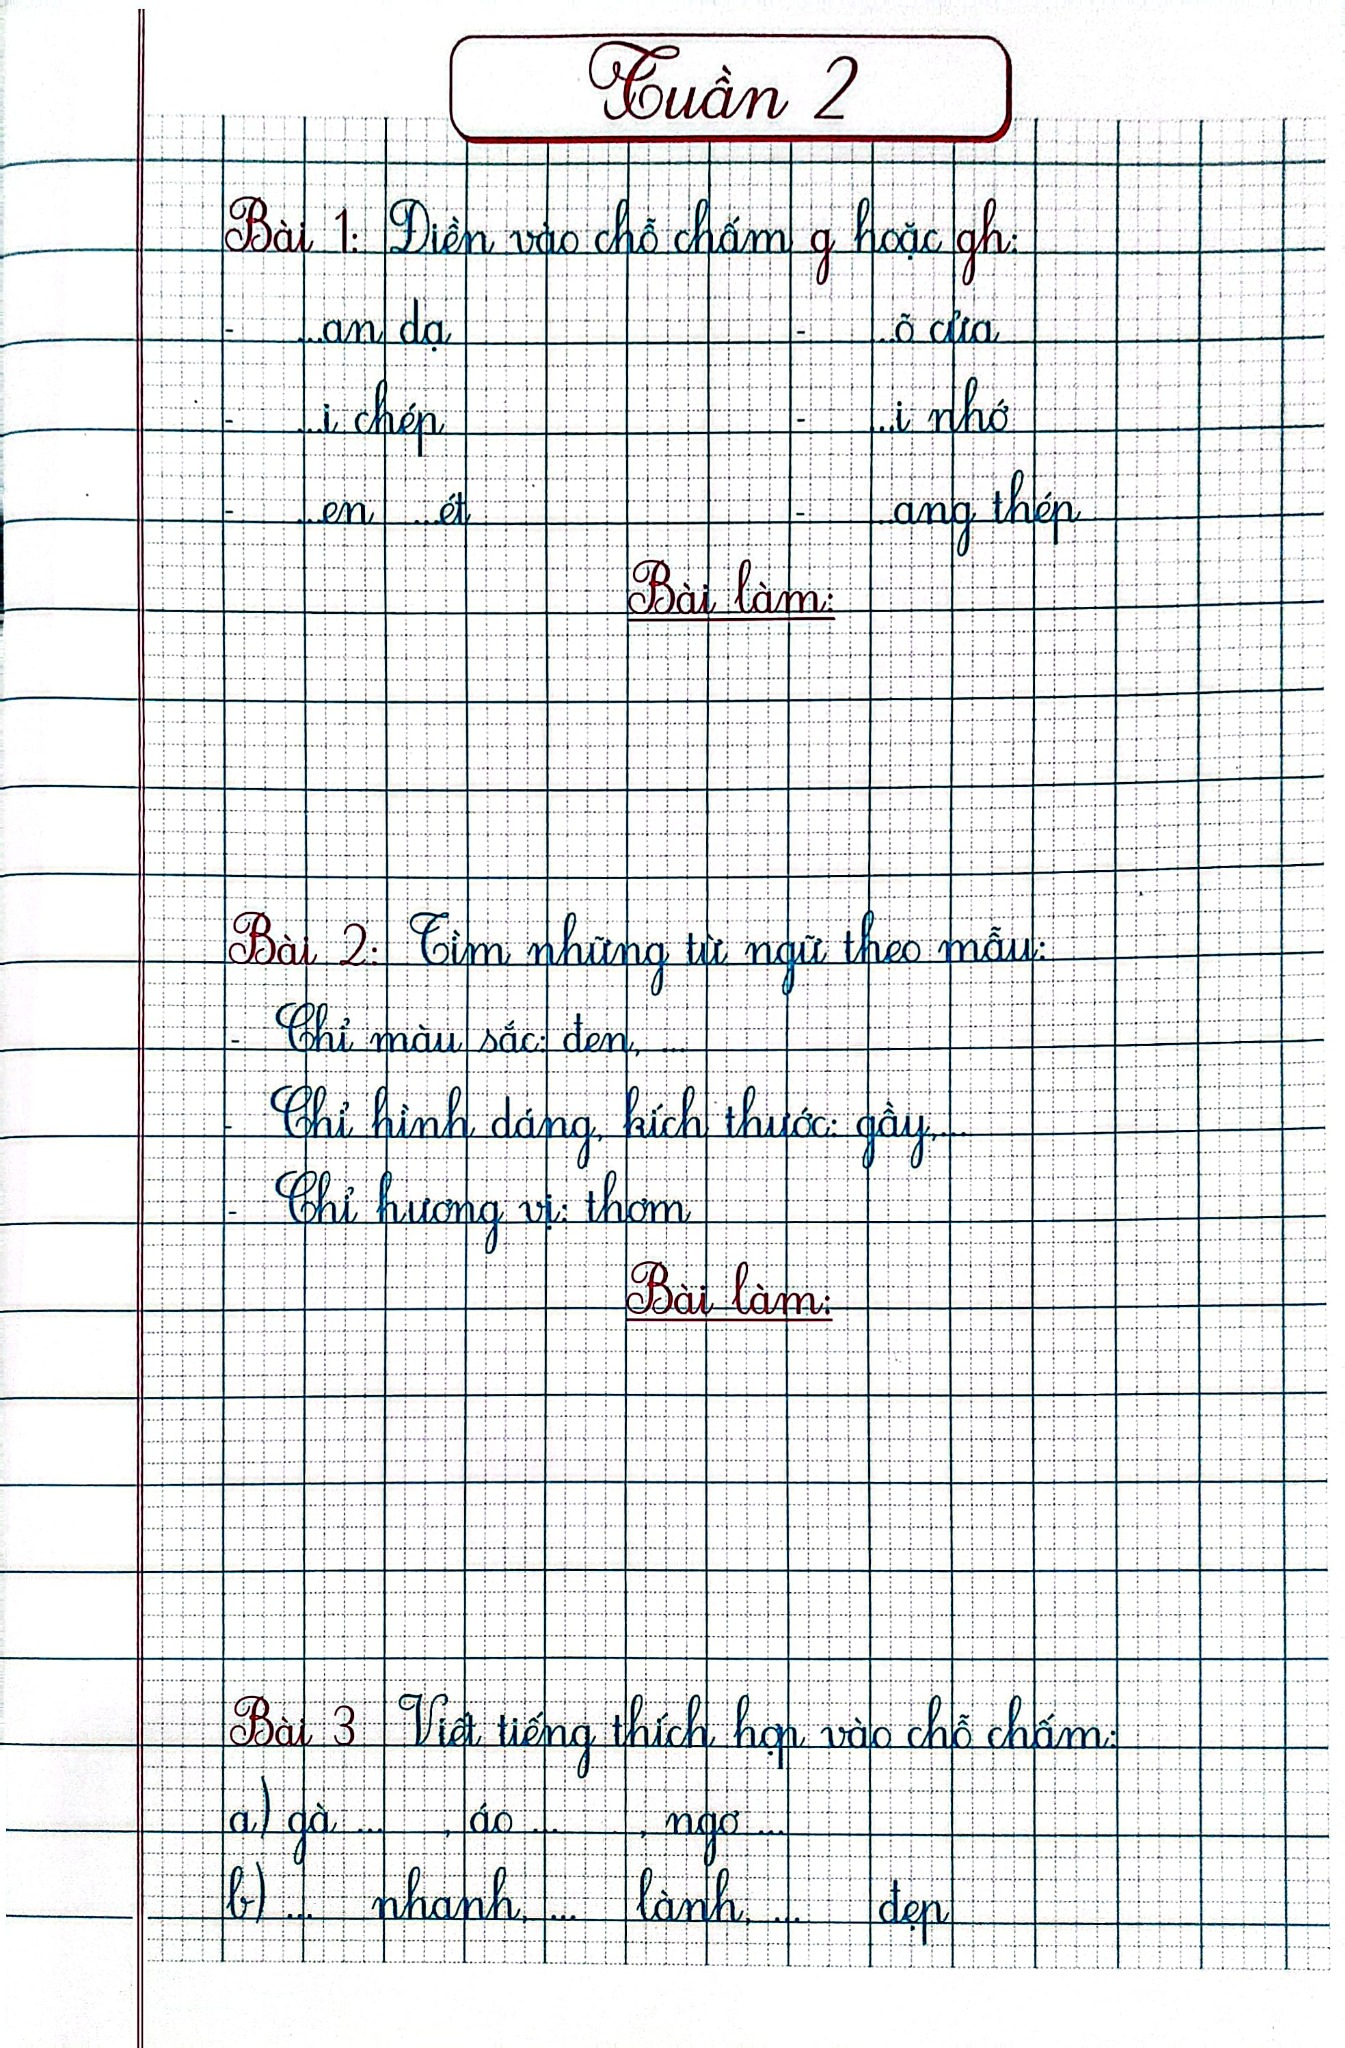 Tuần 2
Bài 1: Điền vào chỗ chấm g hoặc gh:
- ...an dạ - ...õ cửa
- ...i chép - ...i nhớ
- ...en ...ét - ...ang thép
Bài làm:
Bài 2: Tìm những từ ngữ theo mẫu:
- Chỉ màu sắc: đen, ...
- Chỉ hình dáng, kích thước: gầy,...
- Chỉ hương vị: thơm
Bài làm:
Bài 3 Viết tiếng thích hợp vào chỗ chấm:
a) gà ... , áo ... , ngơ ...
b) ... nhanh, ... lành, ... đẹp